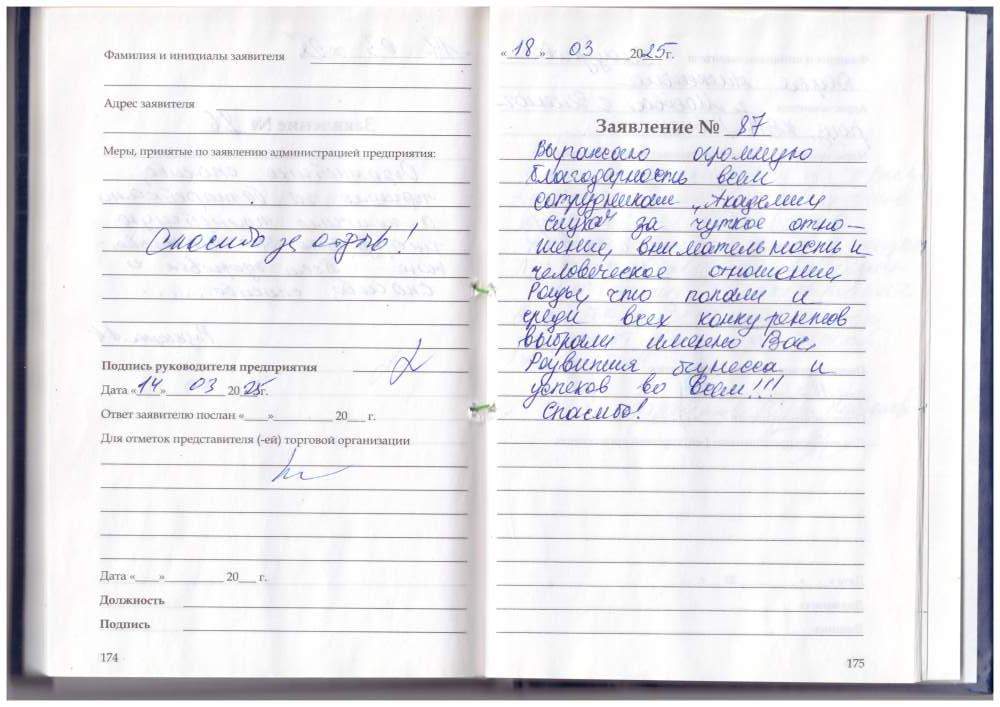 Фамилия и инициалы заявителя
Адрес заявителя
Меры, принятые по заявлению администрацией предприятия:
Спасибо за отзыв!
Подпись руководителя предприятия
Дата «14» 03 2025г.
Ответ заявителю послан «___» ________ 20__ г.
Для отметок представителя (-ей) торговой организации
Дата «___» ________ 20__ г.
Должность
Подпись
174
«18» 03 2025г.
Заявление № 87
Выражаю огромную
благодарность всем
сотрудникам „Академии
слуха" за чуткое отно-
шение, внимательность и
человеческое отношение,
Рады, что попали и
среди всех конкурентов
выбрали именно Вас,
Развития бизнеса и
успехов во Всем!!!
Спасибо!
175